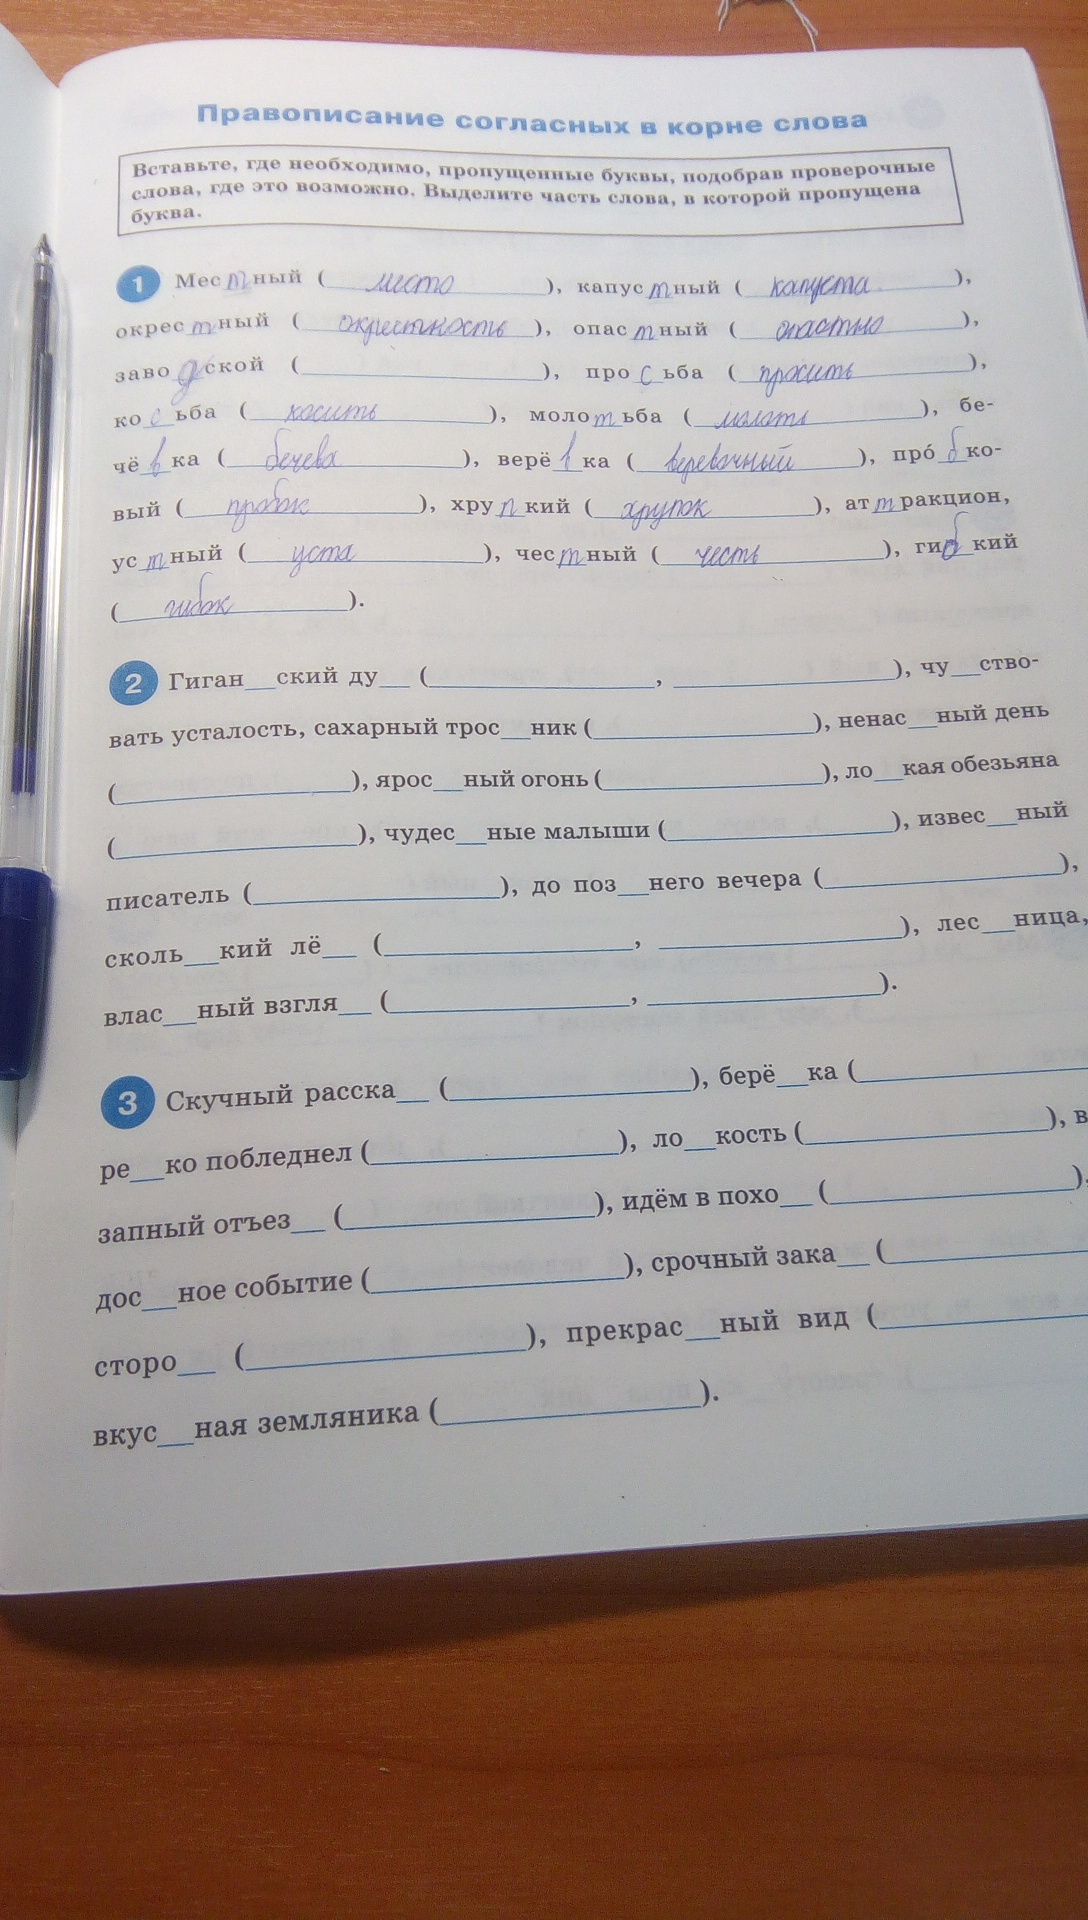 Правописание согласных в корне слова
Вставьте, где необходимо, пропущенные буквы, подобрав проверочные
слова, где это возможно. Выделите часть слова, в которой пропущена
буква.
1 Мес т ный ( место ), капус т ный ( капуста ),
окрес т ный ( окрестность ), опас т ный ( опастно ),
заво д ской (__), про с ьба ( просить ),
ко с ьба ( косить ), моло т ьба ( молоть ), бе-
чё в ка ( бечева ), верё в ка ( веревочный ), про́ б ко-
вый ( пробок ), хру п кий ( хрупок ), ат т ракцион,
ус т ный ( уста ), чес т ный ( честь ), ги б кий
( гибок ).
2 Гиган__ский ду__ (__, __), чу__ство-
вать усталость, сахарный трос__ник (__), ненас__ный день
(__), ярос__ный огонь (__), ло__кая обезьяна
(__), чудес__ные малыши (__), извес__ный
писатель (__), до поз__него вечера (__),
сколь__кий лё__ (__, __), лес__ница,
влас__ный взгля__ (__, __).
3 Скучный расска__ (__), берё__ка (__
ре__ко побледнел (__), ло__кость (__), в
запный отъез__ (__), идём в похо__ (__),
дос__ное событие (__), срочный зака__ (__
сторо__ (__), прекрас__ный вид (__
вкус__ная земляника (__).